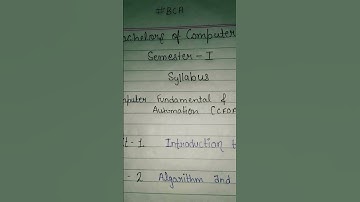 #BCA
achelors of Computer
Semester - I
Syllabus
mputer Fundamental &
Automation (CFOA
it - 1 Introduction t
- 2 Algorithm and